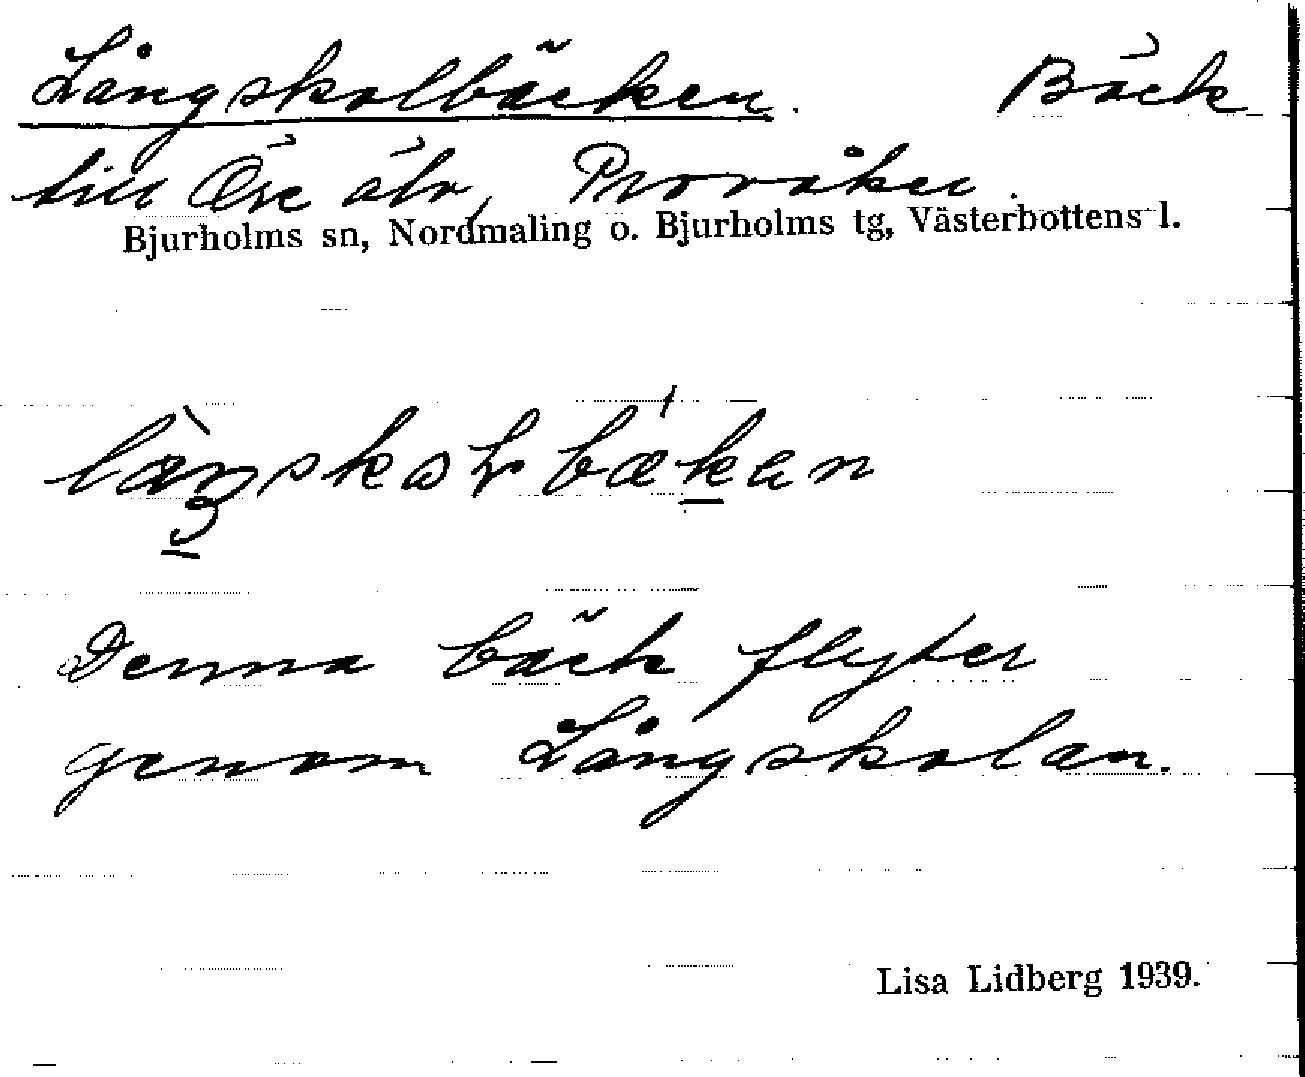 Långskolbäcken. Bäck
till Öre älv, Provåker.
Bjurholms sn, Nordmaling o. Bjurholms tg, Västerbottens l.
Denna bäck flyter
genom Långskolan.
Lisa Lidberg 1939.